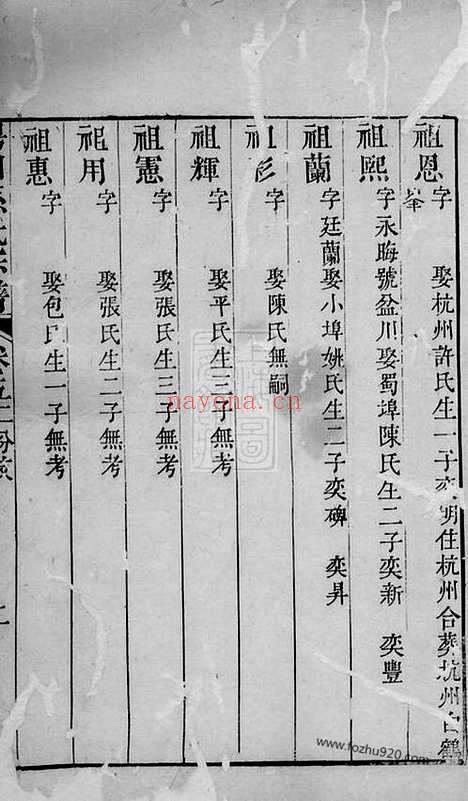 祖恩 字 娶杭州許氏生一子奕明住杭州合葬杭州白鶴峯
祖熙 字永晦號盆川娶蜀埠陳氏生二子奕新 奕豐
祖蘭 字廷蘭娶小埠姚氏生二子奕碑 奕昇
祖彡 字 娶陳氏無嗣
祖輝 字 娶平氏生三子無考
祖憲 字 娶張氏生三子無考
祖用 字 娶張氏生二子無考
祖惠 字 娶包氏生一子無考
nayona.cn
www.fozhu920.com